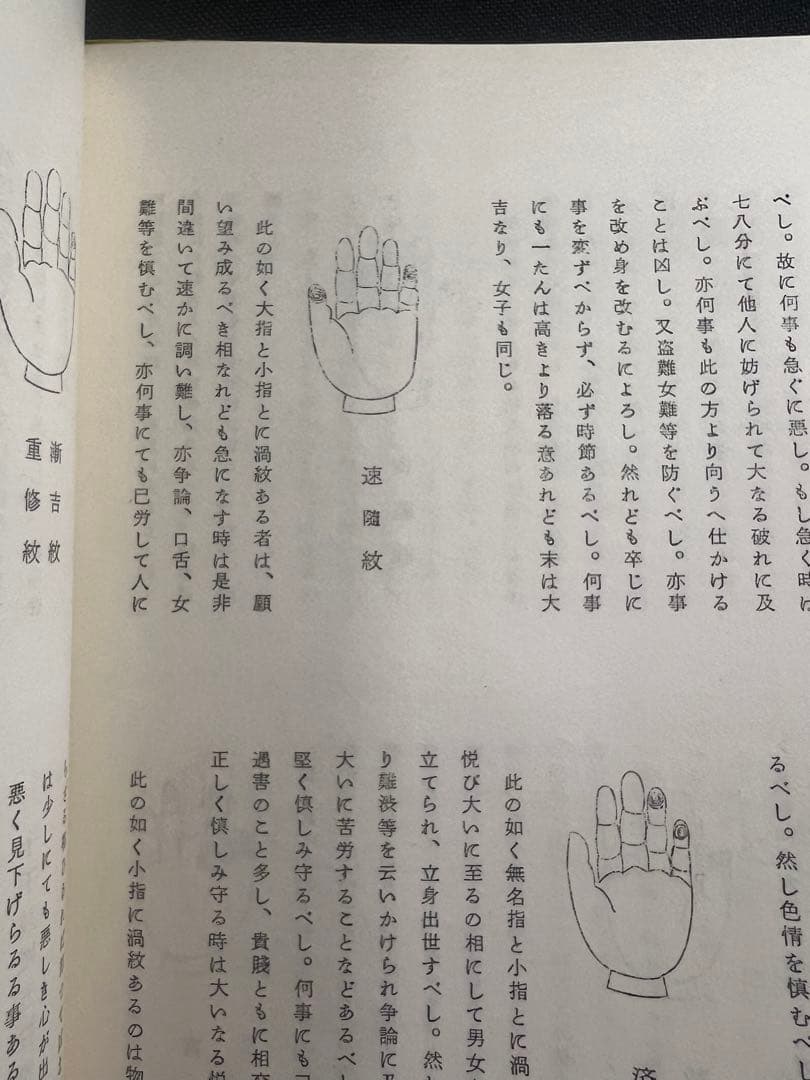 べし。故に何事も急ぐに悪し。もし急ぐ時は
七八分にて他人に妨げられて大なる破れに及
ぶべし。亦何事も此の方より向うへ仕かける
ことは凶し。又盗難女難等を防ぐべし。亦事
を改め身を改むるによろし。然れども卒じに
事を変ずべからず、必ず時節あるべし。何事
にも一たんは高きより落る意あれども末は大
吉なり、女子も同じ。
速隨紋
此の如く大指と小指とに渦紋ある者は、願
い望み成るべき相なれども急になす時は是非
間違いて速かに調い難し、亦争論、口舌、女
難等を慎むべし、亦何事にても已労して人に
るべし。然し色情を慎むべし
済
此の如く無名指と小指とに渦
悦び大いに至るの相にして男女
立てられ、立身出世すべし。然
り難渋等を云いかけられ争論に及
大いに苦労することなどあるべ
堅く慎しみ守るべし。何事にも
過害のこと多し、貴賤ともに相
正しく慎しみ守る時は大いなる悦
此の如く小指に渦紋あるのは物
漸吉紋
重修紋
は少しにても悪しき心が出
悪く見下げらるる事ある